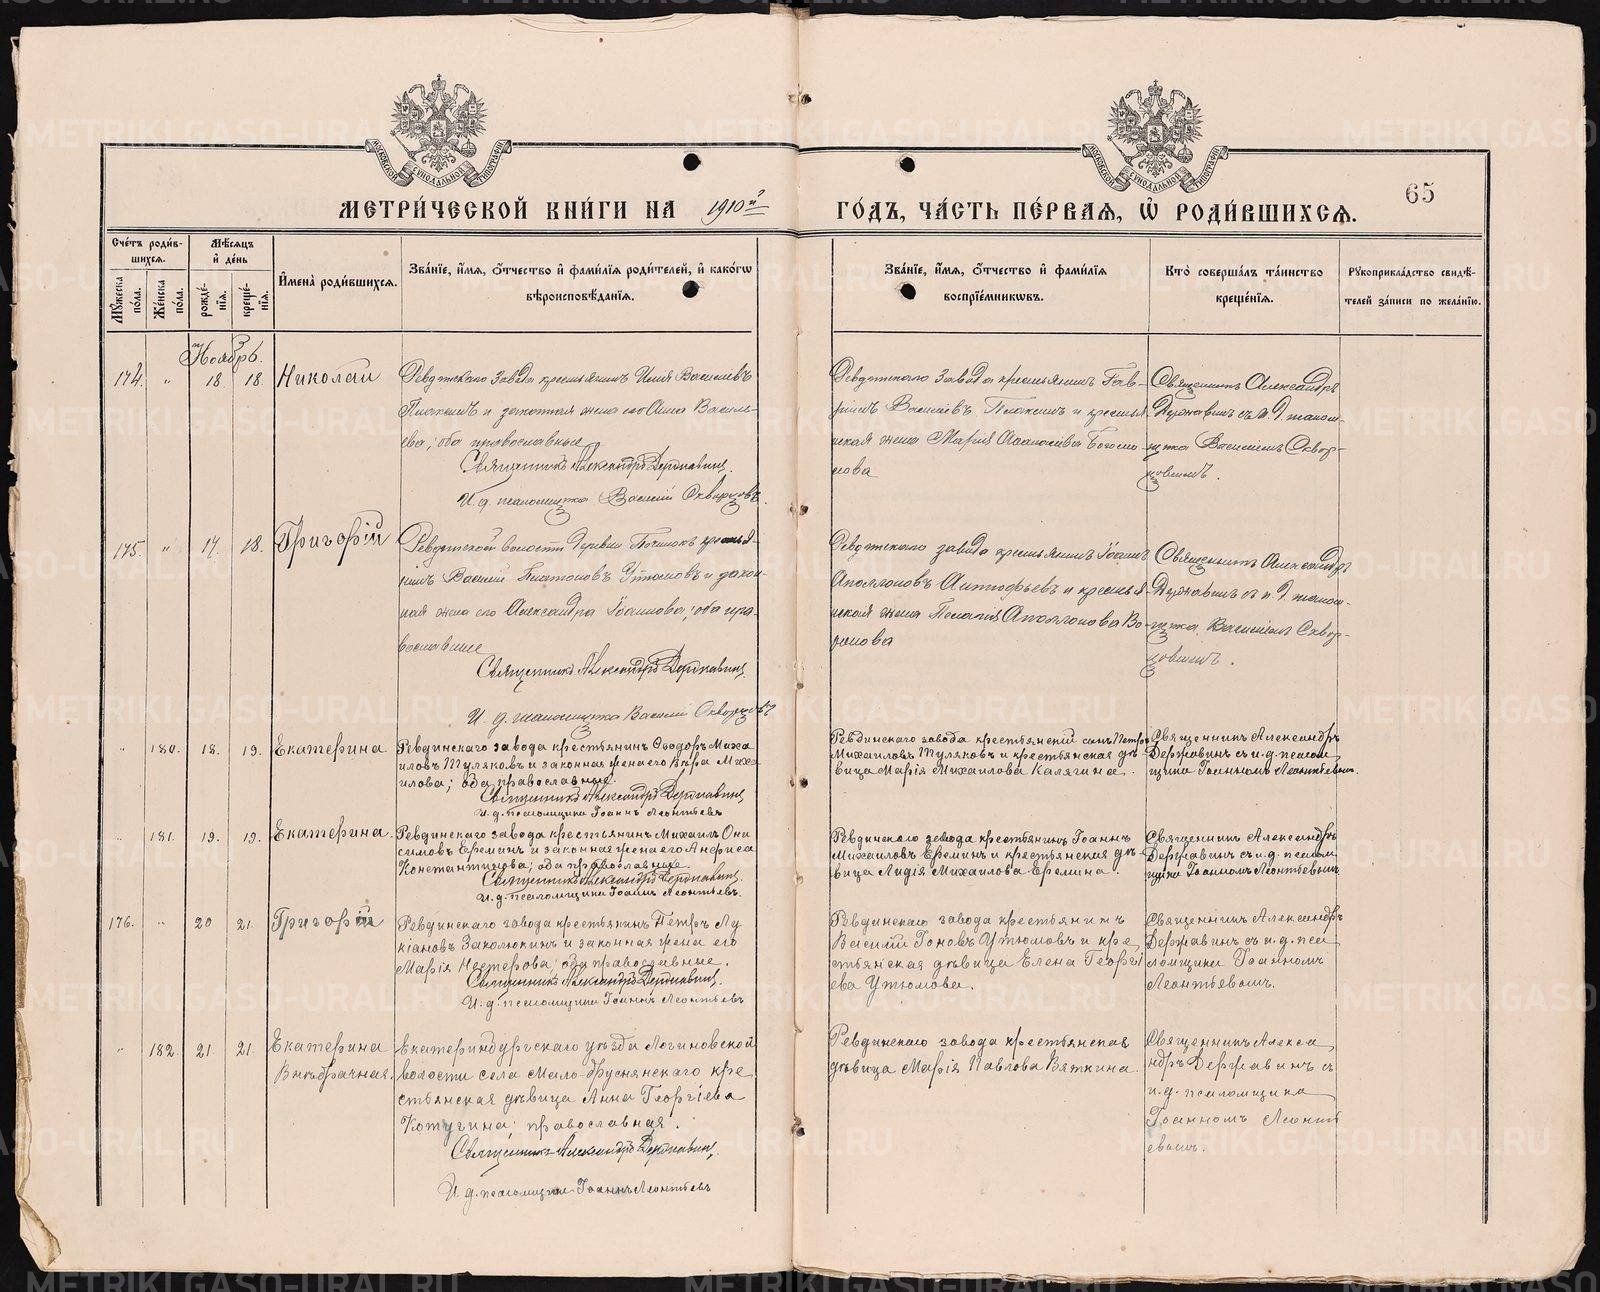 МОСКОВСКОЙ СѴНОДАЛЬНОЙ ТИПОГРАФІИ
МОСКОВСКОЙ СѴНОДАЛЬНОЙ ТИПОГРАФІИ
65
МЕТРИ́ЧЕСКОЙ КНИ́ГИ НА 1910й ГО́ДЪ, ЧА́СТЬ ПЕ́РВАѦ, Ѡ҆ РОДИ́ВШИХСѦ.
Сче́тъ роди́в-
шихсѧ.
Мꙋ́жеска по́ла.
Же́нска по́ла.
Мѣ́сѧцъ
и҆ де́нь
рожде́-
нїѧ.
креще́-
нїѧ.
И҆мена̀ роди́вшихсѧ.
Зва́нїе, и҆́мѧ, ѻ҆́тчество и҆ фами́лїѧ роди́телей, и҆ како́гѡ
вѣроисповѣ́данїѧ.
Зва́нїе, и҆́мѧ, ѻ҆́тчество и҆ фами́лїѧ
воспрїе́мникѡвъ.
Кто̀ соверша́лъ та́инство
креще́нїѧ.
Рꙋкоприкла́дство свидѣ́-
телей за́писи по жела́нїю.
Ноябрь.
174. " 18 18. Николай
Ревдинскаго Завода крестьянинъ Илия Васильевъ
Плоскинъ и законная жена его Анна Василь-
ева; оба православные
Священникъ Александръ Державинъ.
И. д. псаломщика Василій Скворцовъ.
Ревдинскаго Завода крестьянинъ Гав-
риилъ Васильевъ Плоскинъ и крестья-
нская жена Марія
лова
Священникъ Александръ
Державинъ съ и. д. псалом-
щика Василіемъ Сквор-
цовымъ.
175. " 17. 18. Григорій
Ревдинской волости деревни Починокъ крестья-
нинъ Василій Платоновъ Утюмовъ и закон-
ная жена его Александра Іоаннова; оба пра-
вославные
Священникъ Александръ Державинъ.
И. д. псаломщика Василій Скворцовъ
Ревдинскаго завода крестьянинъ Іоаннъ
Аполлоновъ и крестья-
нская жена Пелагія Аполлонова Во-
ронова
Священникъ Александръ
Державинъ съ и. д. псалом-
щика Василіемъ Сквор-
цовымъ.
" 180. 18. 19. Екатерина
Ревдинскаго завода крестьянинъ Ѳеодоръ Миха
иловъ Туляковъ и законная жена его Вѣра Миха
илова; оба православные.
Священникъ Александръ Державинъ
И. д. псаломщика Іоаннъ Леонтьевъ
Ревдинскаго завода крестьянскій сынъ Петръ
Михаиловъ Туляковъ и крестьянская дѣ-
вица Марія Михаилова Калягина.
Священникъ Александръ
Державинъ съ и. д. псалом
щика Іоанномъ Леонтьевымъ.
" 181. 19. 19. Екатерина.
Ревдинскаго завода крестьянинъ Михаилъ Они
симовъ Ереминъ и законная жена его Анфиса
Константинова; оба православные
Священникъ Александръ Державинъ.
И. д. псаломщика Іоаннъ Леонтьевъ.
Ревдинскаго завода крестьянинъ Іоаннъ
Михаиловъ Ереминъ и крестьянская дѣ-
вица Лидія Михаилова Еремина.
Священникъ Александръ
Державинъ съ и. д. псалом
щика Іоанномъ Леонтьевымъ
176. " 20 21. Григорій
Ревдинскаго завода крестьянинъ Петръ Лу
кіановъ Заколюкинъ и законная жена его
Марія Нестерова; оба православные.
Священникъ Александръ Державинъ.
И. д. псаломщика Іоаннъ Леонтьевъ
Ревдинскаго завода крестьянинъ
Василій Іоновъ Утюмовъ и кре
стьянская дѣвица Елена Георгі
ева Утюмова.
Священникъ Александръ
Державинъ съ и. д. пса
ломщика Іоанномъ
Леонтьевымъ.
" 182. 21. 21. Екатерина
Внѣбрачная.
Екатеринбургскаго уѣзда Логиновской
волости села Мало-Бруснянскаго кре
стьянская дѣвица Анна Георгіева
Котугина; православная.
Священникъ Александръ Державинъ.
И. д. псаломщика Іоаннъ Леонтьевъ
Ревдинскаго завода крестьянская
дѣвица Марія Павлова Вяткина.
Священникъ Алекса
ндръ Державинъ съ
и. д. псаломщика
Іоанномъ Леонть
евымъ.
METRIKI.GASO-URAL.RU